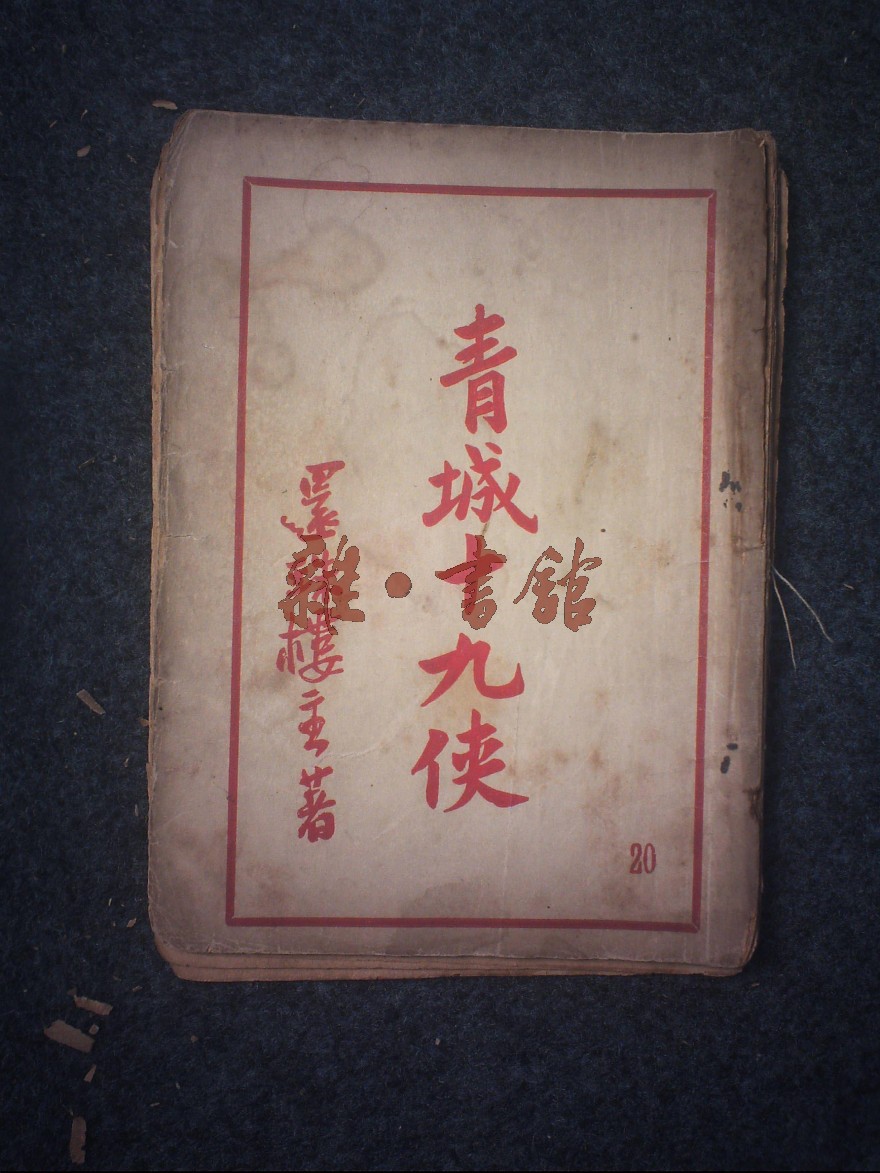 青城十九俠
還珠樓主著
20
雜·書舘